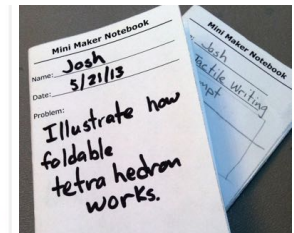 Mini Maker Notebook
Name: Josh
Date: 5/21/13
Problem:
Illustrate how
foldable
tetra hedron
works.
Mini Maker Notebook
Josh
Tactile Writing